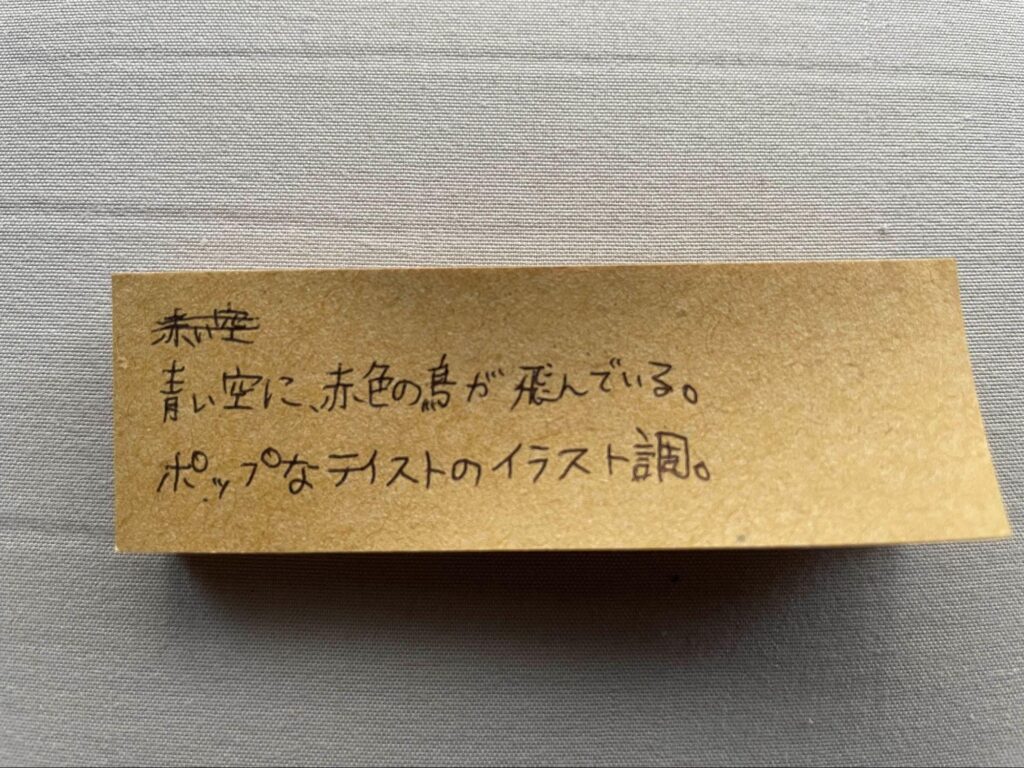 赤い空
青い空に、赤色の鳥が飛んでいる。
ポップなテイストのイラスト調。